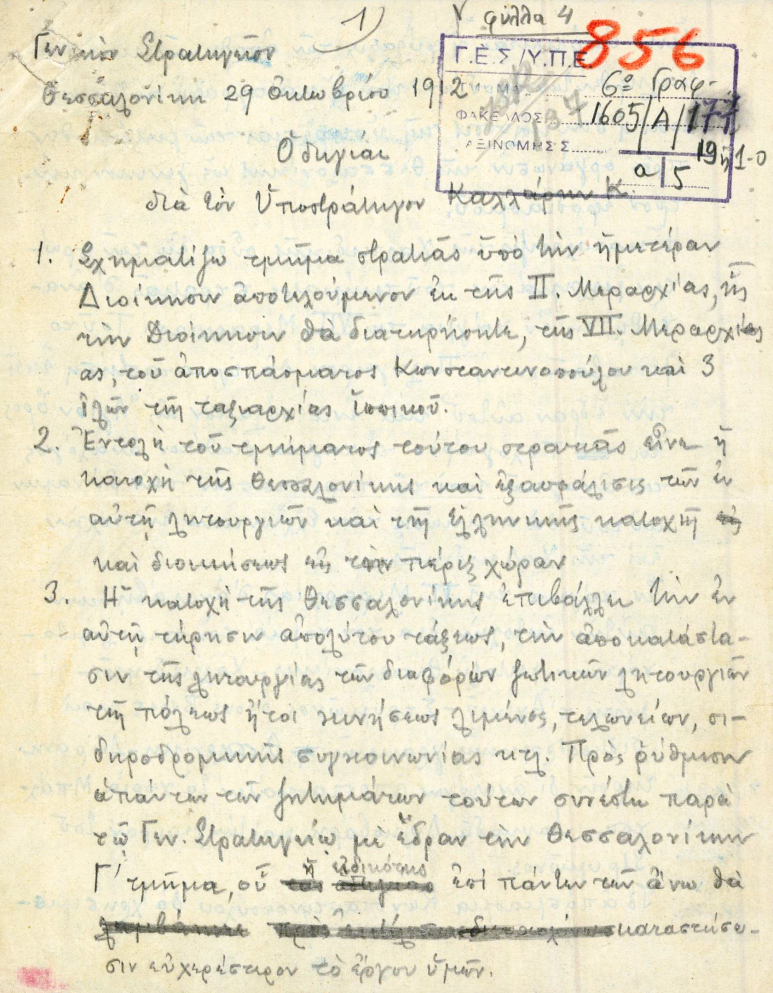 1) φύλλα 4
856
Γενικὸν Στρατηγεῖον
Γ.Ε.Σ/Υ.Π.Ε
Θεσσαλονίκη 29 Ὀκτωβρίου 1912
6ο Γραφ.
ΦΑΚΕΛΛΟΣ 1605/Α/177
Ὁδηγίαι
ΑΞΙΝΟΜΗΣΣ
α/5
διὰ τὸν Ὑποστράτηγον Καλλάρην Κ.
1. Σχηματίζω τμῆμα στρατιᾶς ὑπὸ τὴν ἡμετέραν
Διοίκησιν ἀποτελούμενον ἐκ τῆς ΙΙ. Μεραρχίας, ἧς
τὴν Διοίκησιν θὰ διατηρήσητε, τῆς VII. Μεραρχί
ας, τοῦ ἀποσπάσματος Κωνσταντινοπούλου καὶ 3
ἰλῶν τῆς ταξιαρχίας ἱππικοῦ.
2. Ἐντολὴ τοῦ τμήματος τούτου στρατιᾶς εἶνε ἡ
κατοχὴ τῆς Θεσσαλονίκης καὶ ἐξασφάλισις τῶν ἐν
αὐτῇ λειτουργιῶν καὶ τῆς ἑλληνικῆς κατοχῆς
καὶ διοικήσεως εἰς τὴν πέριξ χώραν
3. Ἡ κατοχὴ τῆς Θεσσαλονίκης ἐπιβάλλει τὴν ἐν
αὐτῇ τήρησιν ἀπολύτου τάξεως, τὴν ἀποκατάστα-
σιν τῆς λειτουργίας τῶν διαφόρων ζωτικῶν λειτουργιῶν
τῆς πόλεως ἤτοι κινήσεως λιμένος, τελωνείων, σι-
δηροδρομικῆς συγκοινωνίας κτλ. Πρὸς ῥύθμισιν
ἁπάντων τῶν ζητημάτων τούτων συνέστη παρὰ
τῷ Γεν. Στρατηγείῳ μὲ ἕδραν τὴν Θεσσαλονίκην
ἡ εἰδικότης
Γ΄ τμῆμα, οὗ ἐπὶ πάντων τῶν ἄνω θὰ
καταστήσω-
σιν εὐχερέστερον τὸ ἔργον ὑμῶν.